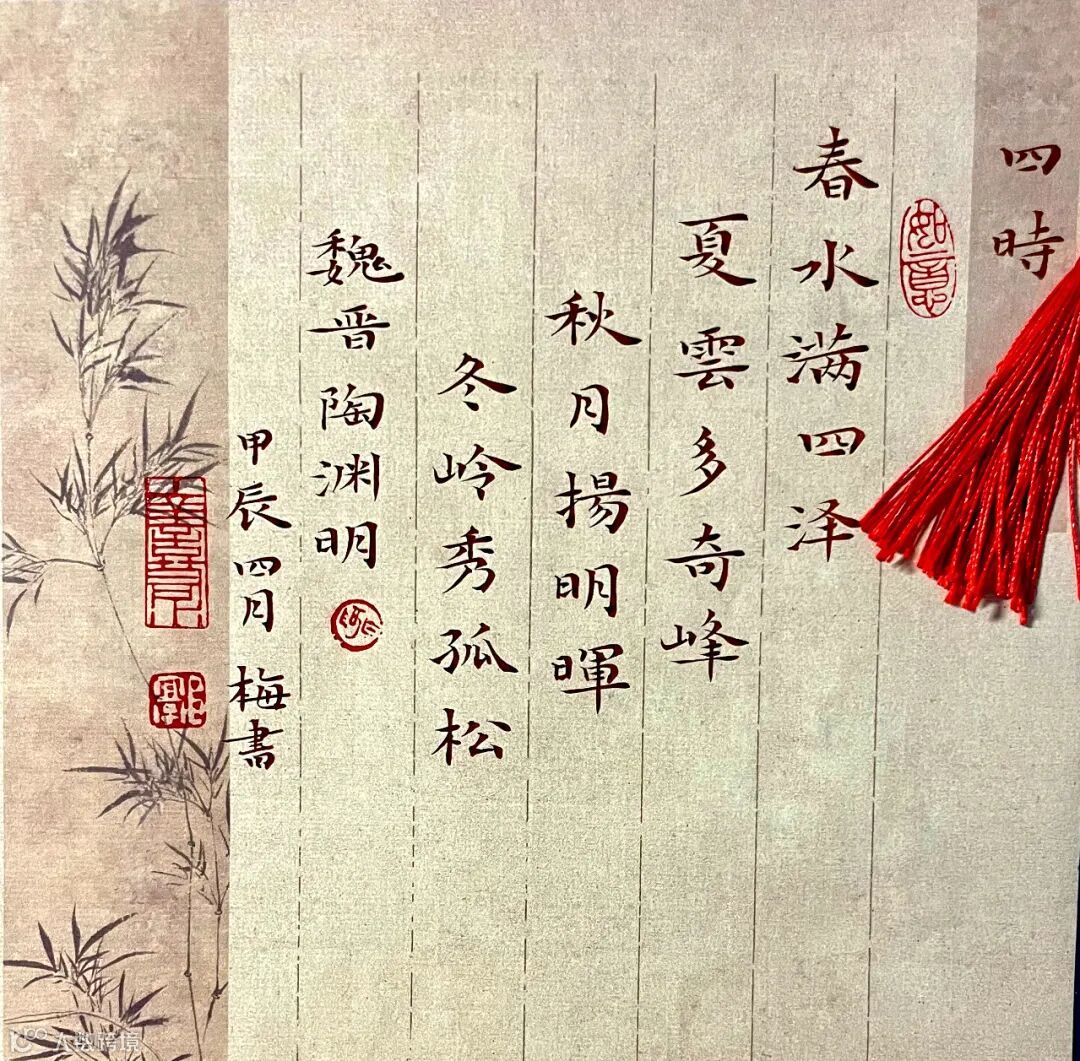 四時
如意
春水满四泽
夏雲多奇峰
秋月揚明暉
冬岭秀孤松
魏晋陶渊明
甲辰四月 梅書
大数跨境